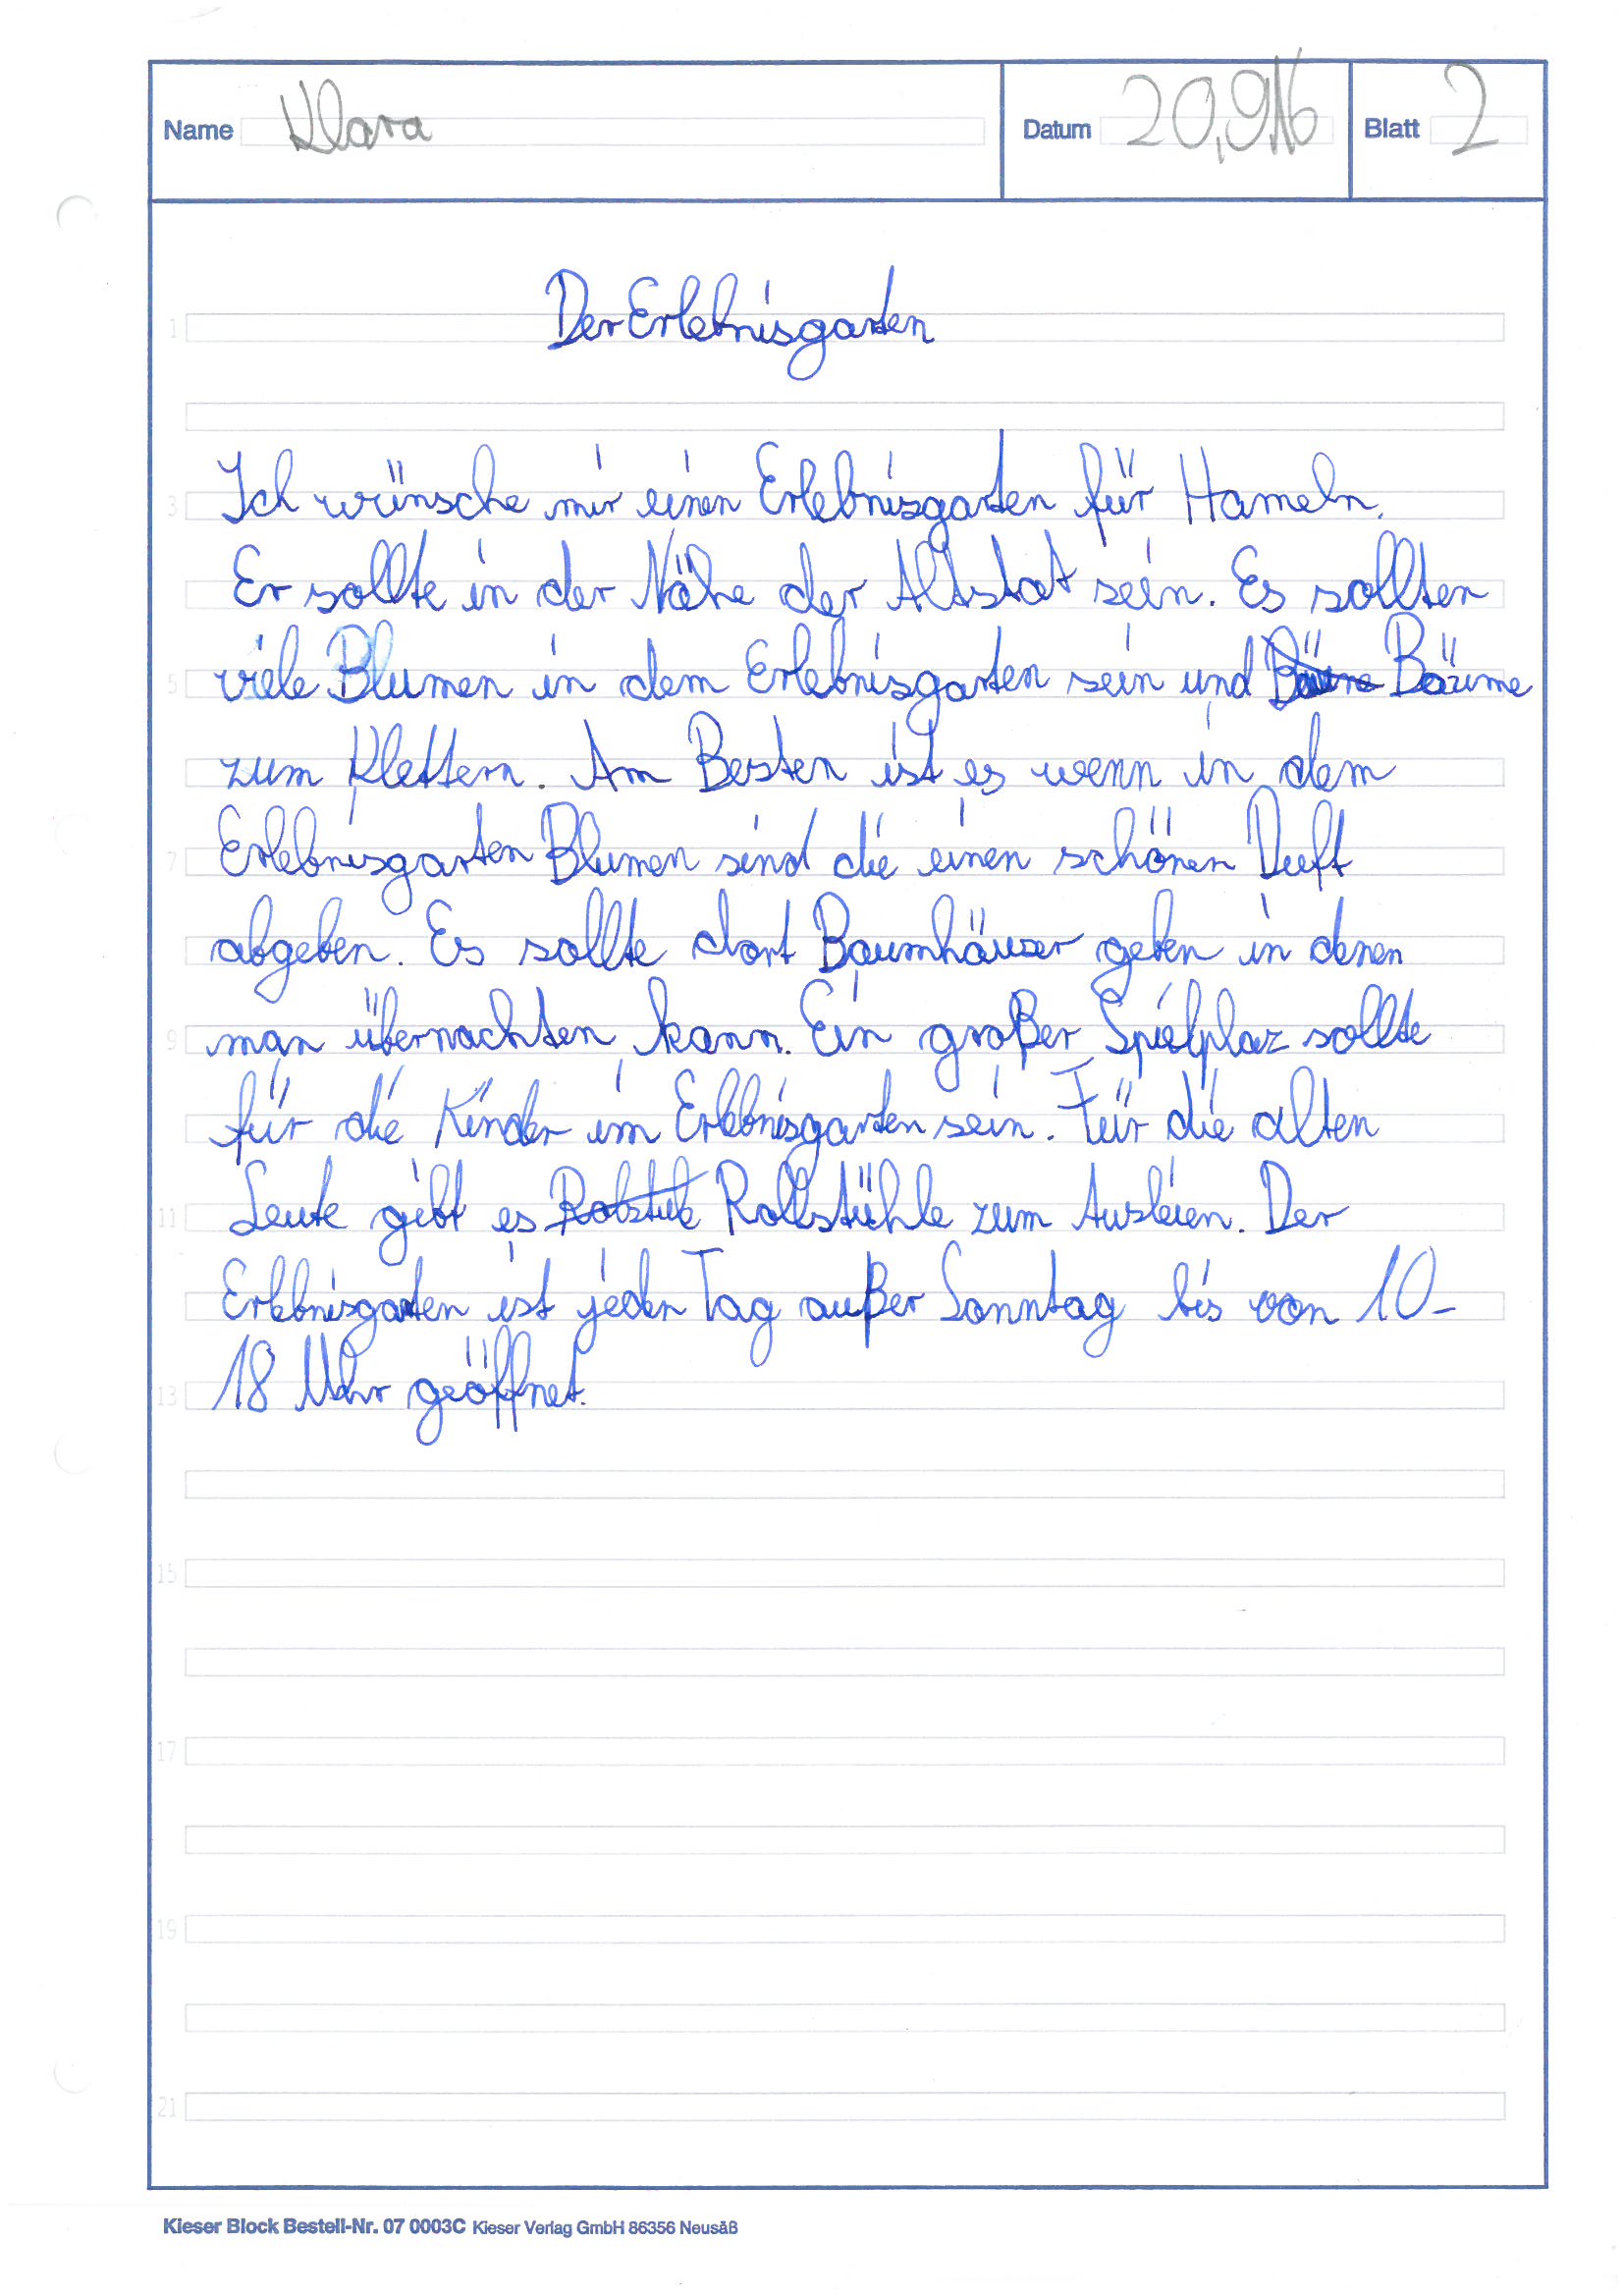 Name Klara Datum 20.9.16 Blatt 2
1 Der Erlebnisgarten
3 Ich wünsche mir einen Erlebnisgarten für Hameln.
Er sollte in der Nähe der Altstat sein. Es sollten
5 viele Blumen in dem Erlebnisgarten sein und Bäume
zum Klettern. Am Besten ist es wenn in dem
7 Erlebnisgarten Blumen sind die einen schönen Duft
abgeben. Es sollte dort Baumhäuser geben in denen
9 man übernachten kann. Ein großer Spielplaz sollte
für die Kinder im Erlebnisgarten sein. Für die alten
11 Leute gibt es Rollstühle zum Ausleien. Der
Erlebnisgarten ist jeden Tag außer Sonntag bis von 10-
13 18 Uhr geöffnet.
15
17
19
21
Kieser Block Bestell-Nr. 07 0003C Kieser Verlag GmbH 86356 Neusäß